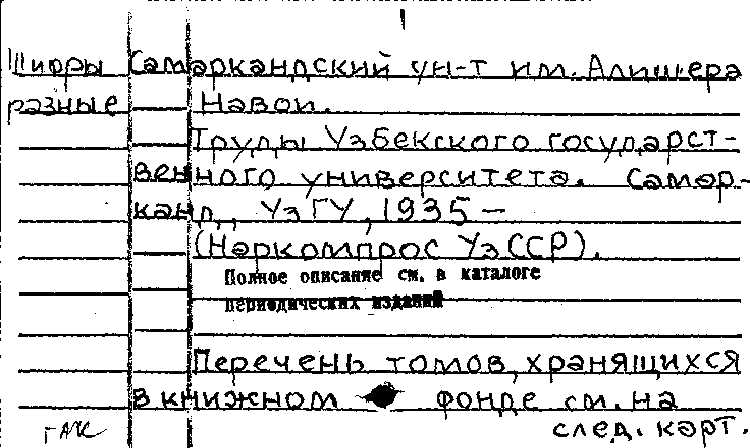 Шифры Самаркандский ун-т им. Алишера
разные Навои.
Труды Узбекского государст-
венного университета. Самар-
канд, УзГУ, 1935 –
(Наркомпрос УзССР).
Полное описание см. в каталоге
периодических изданий
Перечень томов, хранящихся
в книжном фонде см. на
след. карт.